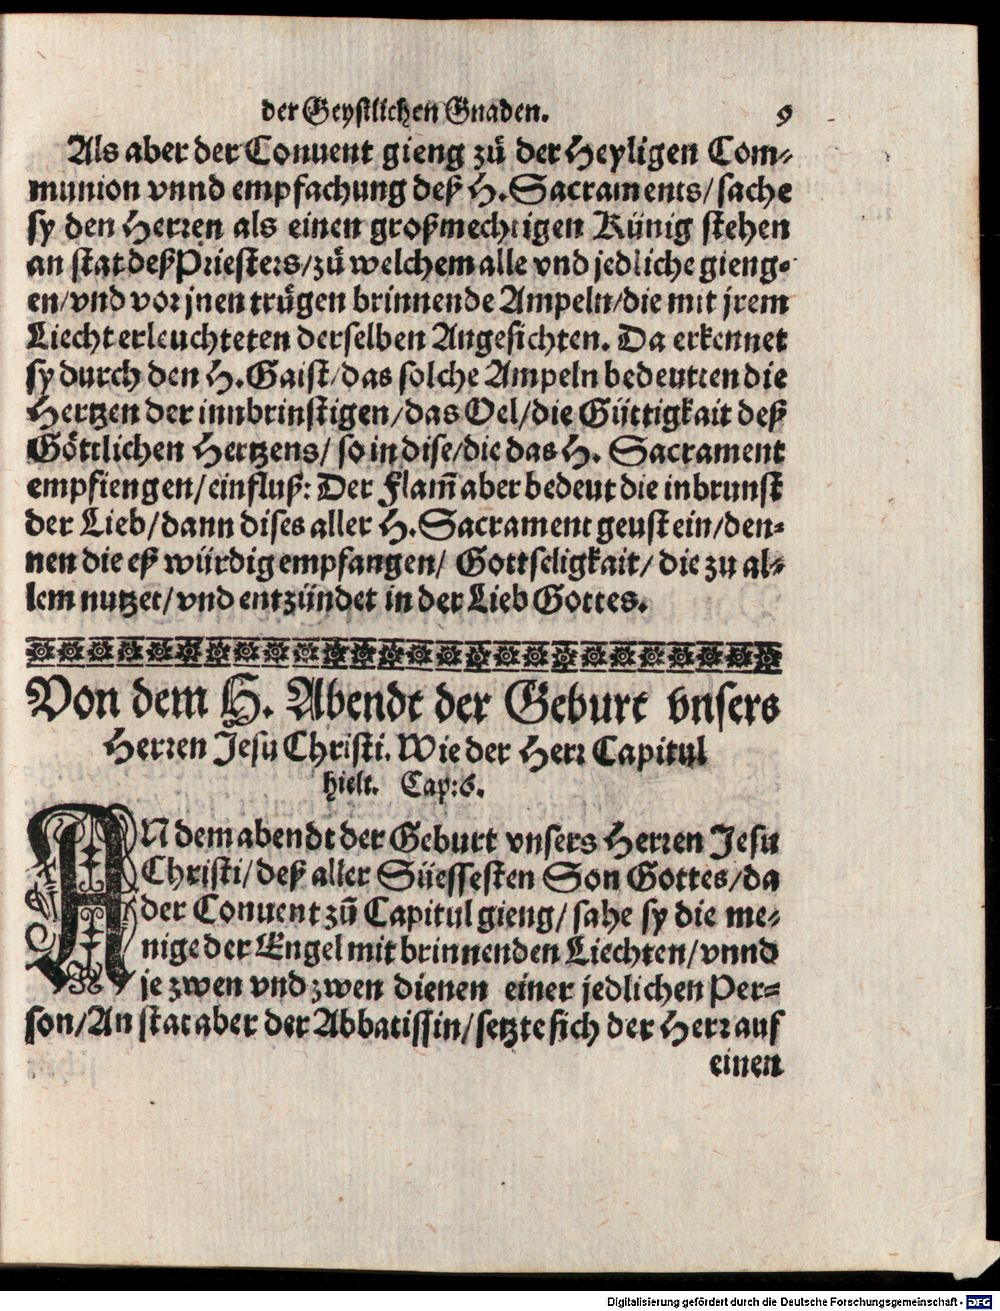 der Geystlichen Gnaden. 9
Als aber der Conuent gieng zů der Heyligen Com-
munion vnnd empfachung deß H. Sacraments/ sache
sy den Herren als einen großmechtigen Künig stehen
an stat deß Priesters/ zů welchem alle vnd jedliche gieng-
en/ vnd vor jnen trůgen brinnende Ampeln/ die mit jrem
Liecht erleuchteten derselben Angesichten. Da erkennet
sy durch den H. Gaist/ das solche Ampeln bedeutten die
Hertzen der innbrinstigen/ das Oel/ die Güttigkait deß
Göttlichen Hertzens/ so in dise/ die das H. Sacrament
empfiengen/ einfluß: Der Flam̃ aber bedeut die inbrunst
der Lieb/ dann dises aller H. Sacrament geust ein/ den-
nen die eß würdig empfangen/ Gottseligkait/ die zu al-
lem nutzet/ vnd entzündet in der Lieb Gottes.
Von dem H. Abendt der Geburt vnsers
Herren Jesu Christi. Wie der Herr Capitul
hielt. Cap: 6.
AN dem abendt der Geburt vnsers Herren Jesu
Christi/ deß aller Süessesten Son Gottes/ da
der Conuent zů Capitul gieng/ sahe sy die me-
nige der Engel mit brinnenden Liechten/ vnnd
je zwen vnd zwen dienen einer jedlichen Per-
son/ An stat aber der Abbatissin/ setzte sich der Herr auf
einen
Digitalisierung gefördert durch die Deutsche Forschungsgemeinschaft - DFG